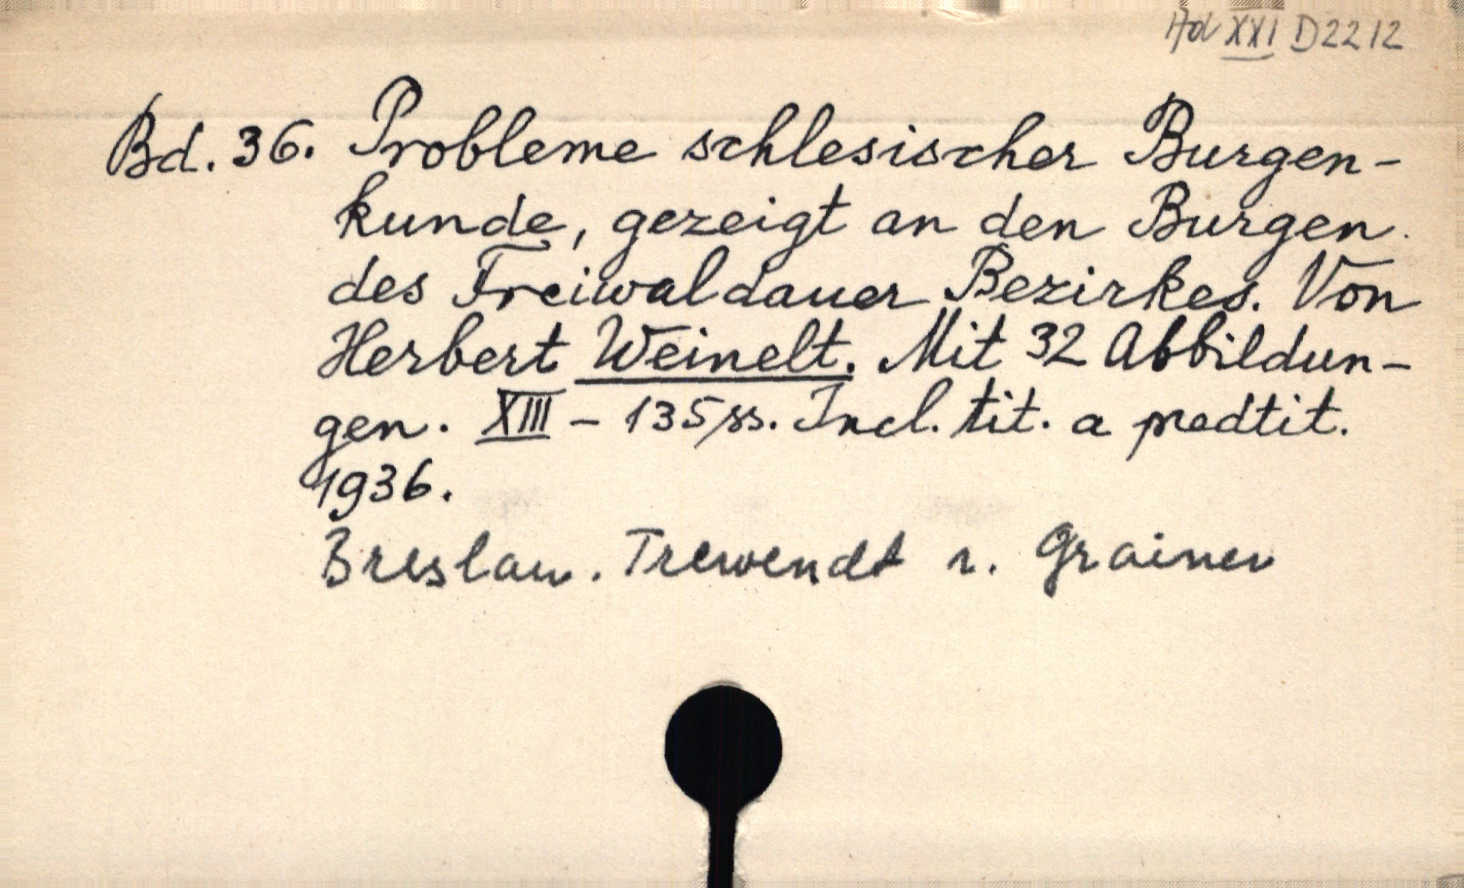 Hd XXI D2212
Bd. 36. Probleme schlesischer Burgen-
kunde, gezeigt an den Burgen
des Freiwaldauer Bezirkes. Von
Herbert Weinelt. Mit 32 Abbildun-
gen. XIII - 135 ss. Incl. tit. a predtit.
1936.
Breslau. Trewendt u. Granier